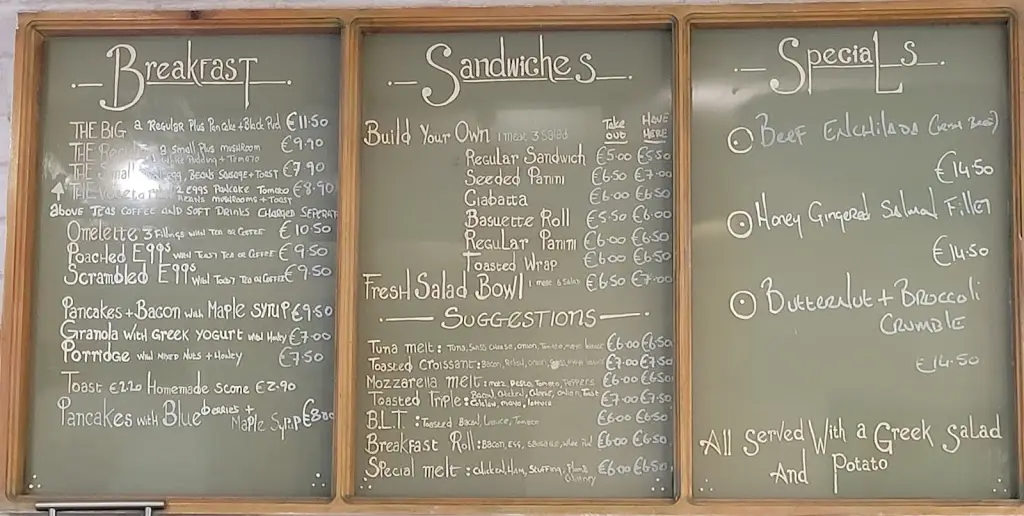 Breakfast
THE BIG a Regular Plus Pancake + Black Pud €11.50
THE Small Plus mushroom €9.90
White Pudding + Tomato
THE Small egg, Beans Sausage + Toast €7.90
THE 2 eggs Pancake Tomato €8.90
Beans mushrooms + Toast
above Teas coffee and soft drinks charged seperat
Omelette 3 Fillings with Tea or Coffee €10.50
Poached Eggs with Toast Tea or Coffee €9.50
Scrambled Eggs with Toast Tea or Coffee €9.50
Pancakes + Bacon with Maple syrup €9.50
Granola with Greek yogurt with Honey €7.00
Porridge with mixed nuts + Honey €7.50
Toast €2.20 Homemade scone €2.90
Pancakes with Blueberries +
Maple Syrup
Sandwiches
Build Your Own 1 meat 3 salad Take out Have Here
Regular Sandwich €5.00 €5.50
Seeded Panini €6.50 €7.00
Ciabatta €6.00 €6.50
Baguette Roll €5.50 €6.00
Regular Panini €6.00 €6.50
Toasted Wrap €6.00 €6.50
Fresh Salad Bowl 1 meat 6 Salad €6.50 €7.00
Suggestions
Tuna melt: Tuna, Swiss Cheese, onion, Tomato, €6.00 €6.50
Toasted Croissant: Bacon, onion, €7.00 €7.50
Mozzarella melt: mozz, Pesto, Tomato, Peppers €6.00 €6.50
Toasted Triple: Bacon, Chicken, Cheese, onion, Toast €7.00 €7.50
mayo, lettuce
B.L.T: Toasted Bacon, Lettuce, Tomato €6.00 €6.50
Breakfast Roll: Bacon, Egg, sausage, white Pud €6.00 €6.50
Special melt: Chicken, Ham, Stuffing, €6.00 €6.50
Chutney
Specials
Beef Enchilada (Irish Beef)
€14.50
Honey Gingered Salmon Fillet
€14.50
Butternut + Broccoli
Crumble
€14.50
All Served With a Greek Salad
And Potato